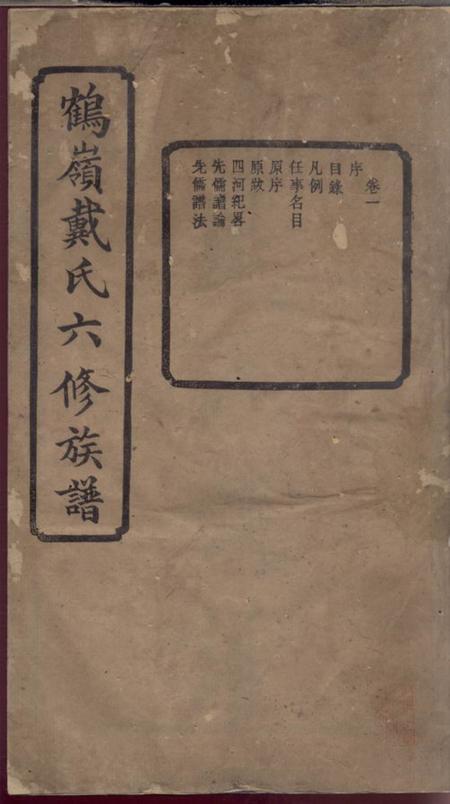 鶴嶺戴氏六修族譜
卷一
序
目錄
凡例
任事名目
原序
原跋
四河紀畧
先儒譜論
先儒譜法